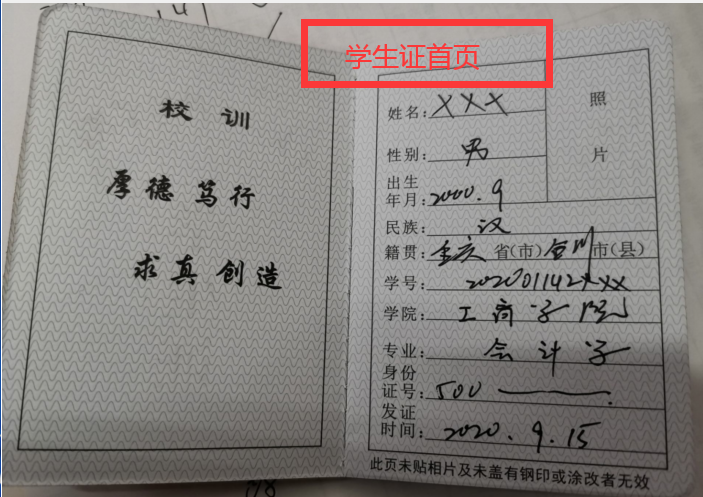 学生证首页
校训
厚德笃行
求真创造
照片
姓名：XXX
性别：男
出生年月：2000.9
民族：汉
籍贯：重庆省(市)合川市(县)
学号：202001142XXX
学院：工商学院
专业：会计学
身份证号：500
发证时间：2020.9.15
此页未贴相片及未盖有钢印或涂改者无效